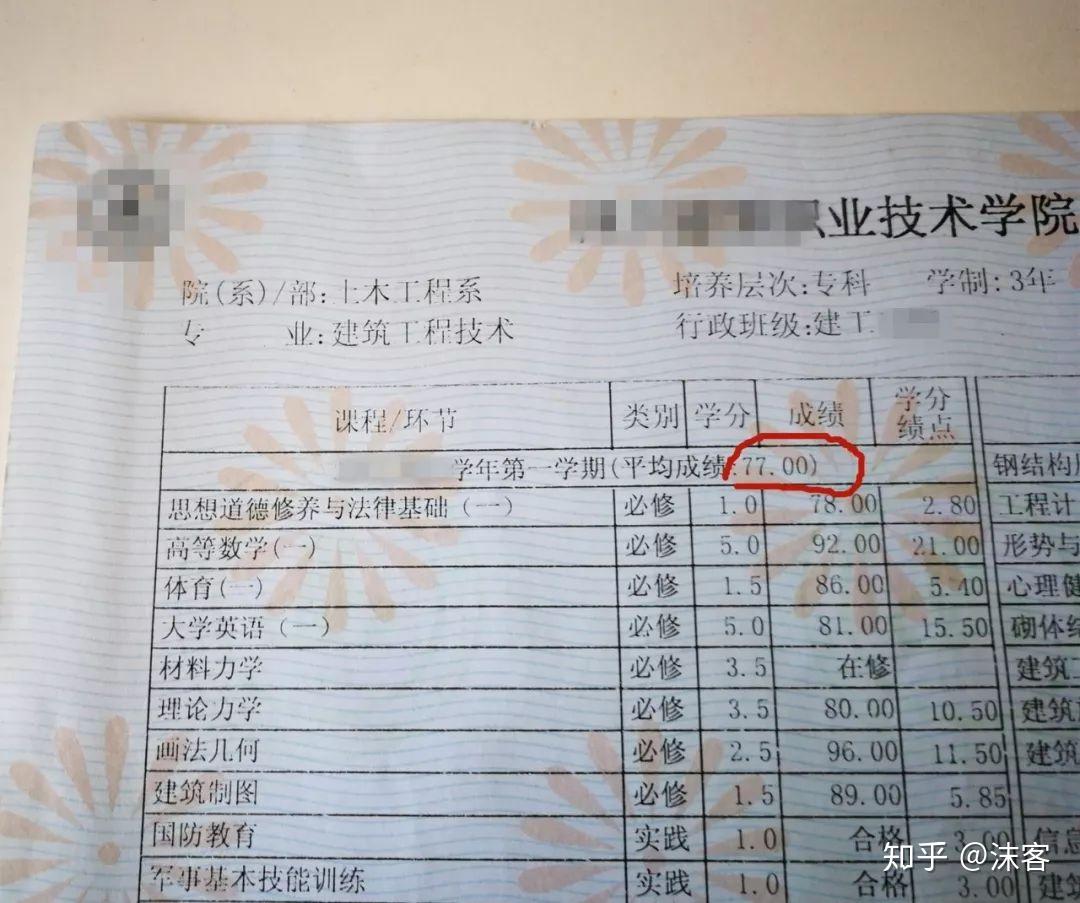 职业技术学院
院(系)/部:土木工程系 培养层次:专科 学制:3年
专 业:建筑工程技术 行政班级:建工
课程/环节 类别 学分 成绩 学分绩点
学年第一学期(平均成绩:77.00) 钢结构
思想道德修养与法律基础(一) 必修 1.0 78.00 2.80 工程计
高等数学(一) 必修 5.0 92.00 21.00 形势与
体育(一) 必修 1.5 86.00 5.40 心理健
大学英语(一) 必修 5.0 81.00 15.50 砌体结
材料力学 必修 3.5 在修 建筑工
理论力学 必修 3.5 80.00 10.50 建筑
画法几何 必修 2.5 96.00 11.50 建筑
建筑制图 必修 1.5 89.00 5.85
国防教育 实践 1.0 合格 3.00 信息
军事基本技能训练 实践 1.0 合格 3.00 建筑
知乎 @沫客